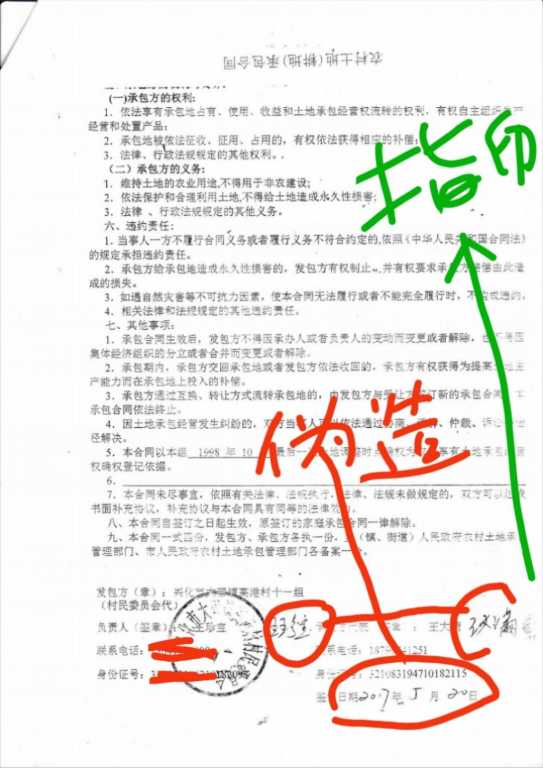 农村土地(耕地)承包合同
(一)承包方的权利:
1、依法享有承包地占有、使用、收益和土地承包经营权流转的权利,有权自主组织生产
经营和处置产品;
2、承包地被依法征收、征用、占用的,有权依法获得相应的补偿;
3、法律、行政法规规定的其他权利。
(二)承包方的义务:
1、维持土地的农业用途,不得用于非农建设;
2、依法保护和合理利用土地,不得给土地造成永久性损害;
3、法律、行政法规规定的其他义务。
六、违约责任:
1.当事人一方不履行合同义务或者履行义务不符合约定的,依照《中华人民共和国合同法》
的规定承担违约责任。
2、承包方给承包地造成永久性损害的,发包方有权制止,并有权要求承包方赔偿由此造
成的损失。
3、如遇自然灾害等不可抗力因素,使本合同无法履行或者不能完全履行时,不构成违约。
4、相关法律和法规规定的其他违约责任。
七、其他事项:
1、承包合同生效后,发包方不得因承办人或者负责人的变动而变更或者解除,也不得因
集体经济组织的分立或者合并而变更或者解除。
2、承包期内,承包方交回承包地或者发包方依法收回的,承包方有权获得为提高土地生
产能力而在承包地上投入的补偿。
3、承包方通过互换、转让方式流转承包地的,由发包方与受让方签订新的承包合同,
承包合同依法终止。
4、因土地承包经营发生纠纷的,双方当事人可以依法通过协商、仲裁、诉讼
径解决。
5、本合同以本组 1998 年 10 最后一
权确权登记依据。
6、
7、本合同未尽事宜,依照有关法律、法规执行,法律、法规未做规定的,双方可以达成
书面补充协议,补充协议与本合同具有同等的法律效力。
八、本合同自签订之日起生效,原签订的家庭承包合同一律解除。
九、本合同一式四份,发包方、承包方各执一份,(镇、街道)人民政府农村土地承
管理部门、市人民政府农村土地承包管理部门各备案一份。
指印
伪造
发包方(章):兴化 港村十一组
(村民委员会代)
负责人(签章):王珍宝 王大
联系电话: 联系电话:
身份证号: 身份证号:321083194710182115
签 日期2017年5月20日